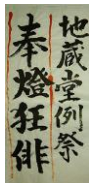 地蔵堂例祭
奉燈狂俳